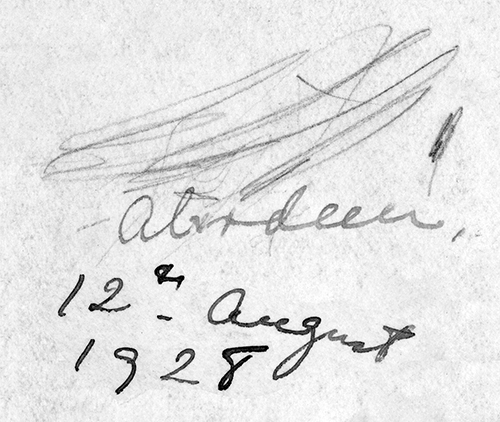 Aberdeen,
12th August
1928